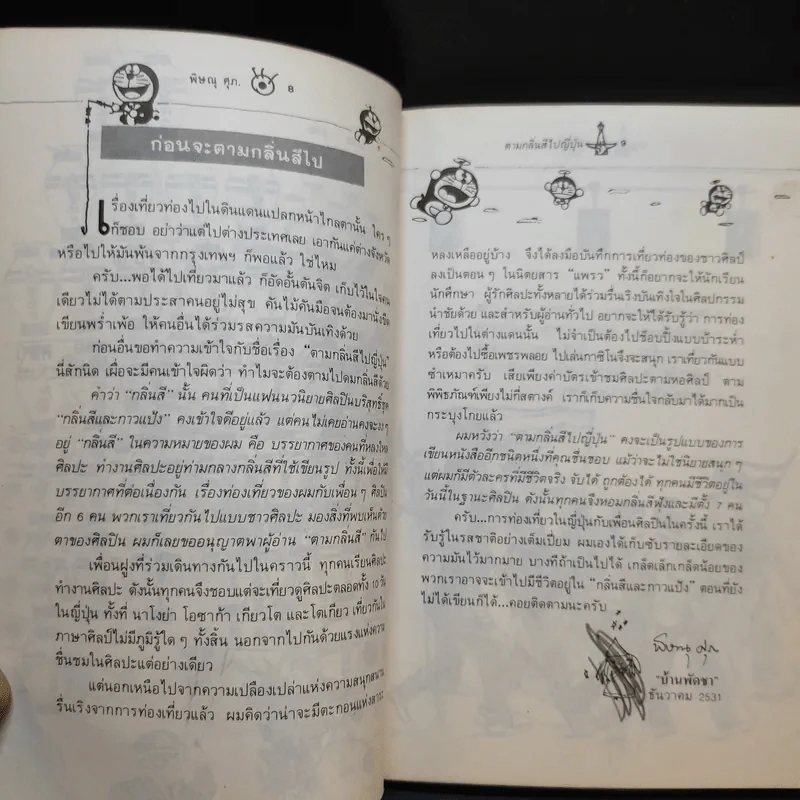 พิษณุ ศุภ. ๘
ก่อนจะตามกลิ่นสีไป
เรื่องเที่ยวท่องไปในดินแดนแปลกหน้าไกลตานั้น ใคร ๆ
ก็ชอบ อย่าว่าแต่ไปต่างประเทศเลย เอากันแค่ต่างจังหวัด
หรือไปให้มันพ้นจากกรุงเทพฯ ก็พอแล้ว ใช่ไหม
ครับ...พอได้ไปเที่ยวมาแล้ว ก็อัดอั้นตันจิต เก็บไว้ในใจคน
เดียวไม่ได้ตามประสาคนอยู่ไม่สุข คันไม้คันมือจนต้องมานั่งขีด
เขียนพร่ำเพ้อ ให้คนอื่นได้ร่วมรสความมันบันเทิงด้วย
ก่อนอื่นขอทำความเข้าใจกับชื่อเรื่อง "ตามกลิ่นสีไปญี่ปุ่น"
นี้สักนิด เผื่อจะมีคนเข้าใจผิดว่า ทำไมจะต้องตามไปดมกลิ่นสีด้วย
คำว่า "กลิ่นสี" นั้น คนที่เป็นแฟนนวนิยายศิลปินบริสุทธิ์ชุด
"กลิ่นสีและกาวแป้ง" คงเข้าใจดีอยู่แล้ว แต่คนไม่เคยอ่านคงจะงง ๆ
อยู่ "กลิ่นสี" ในความหมายของผม คือ บรรยากาศของคนที่หลงใหล
ศิลปะ ทำงานศิลปะอยู่ท่ามกลางกลิ่นสีที่ใช้เขียนรูป ทั้งนี้เพื่อให้มี
บรรยากาศที่ต่อเนื่องกัน เรื่องท่องเที่ยวของผมกับเพื่อน ๆ ศิลปิน
อีก 6 คน พวกเราเที่ยวกันไปแบบชาวศิลปะ มองสิ่งที่พบเห็นด้วย
ตาของศิลปิน ผมก็เลยขออนุญาตพาผู้อ่าน "ตามกลิ่นสี" กันไป
เพื่อนฝูงที่ร่วมเดินทางกันไปในคราวนี้ ทุกคนเรียนศิลปะ
ทำงานศิลปะ ดังนั้นทุกคนจึงชอบแต่จะเที่ยวดูศิลปะตลอดทั้ง 10 วัน
ในญี่ปุ่น ทั้งที่ นาโงย่า โอซาก้า เกียวโต และโตเกียว เที่ยวกันใน
ภาษาศิลป์ไม่มีภูมิรู้ใด ๆ ทั้งสิ้น นอกจากไปกันด้วยแรงแห่งความ
ชื่นชมในศิลปะแต่อย่างเดียว
แต่นอกเหนือไปจากความเปลืองเปล่าแห่งความสนุกสนาน
รื่นเริงจากการท่องเที่ยวแล้ว ผมคิดว่าน่าจะมีตะกอนแห่งสาระ
ตามกลิ่นสีไปญี่ปุ่น ๙
หลงเหลืออยู่บ้าง จึงได้ลงมือบันทึกการเที่ยวท่องของชาวศิลป์
ลงเป็นตอน ๆ ในนิตยสาร "แพรว" ทั้งนี้ก็อยากจะให้นักเรียน
นักศึกษา ผู้รักศิลปะทั้งหลายได้ร่วมรื่นเริงบันเทิงใจในศิลปกรรม
นำชัยด้วย และสำหรับผู้อ่านทั่วไป อยากจะให้ได้รับรู้ว่า การท่อง
เที่ยวไปในต่างแดนนั้น ไม่จำเป็นต้องไปช็อบปิ้งแบบบ้าระห่ำ
หรือต้องไปซื้อเพชรพลอย ไปเล่นกาซิโนจึงจะสนุก เราเที่ยวกันแบบ
ซำเหมาครับ เสียเพียงค่าบัตรเข้าชมศิลปะตามหอศิลป์ ตาม
พิพิธภัณฑ์เพียงไม่กี่สตางค์ เราก็เก็บความชื่นใจกลับมาได้มากเป็น
กระบุงโกยแล้ว
ผมหวังว่า "ตามกลิ่นสีไปญี่ปุ่น" คงจะเป็นรูปแบบของการ
เขียนหนังสืออีกชนิดหนึ่งที่คุณชื่นชอบ แม้ว่าจะไม่ใช่นิยายสนุก ๆ
แต่ผมก็มีตัวละครที่มีชีวิตจริง จับได้ ถูกต้องได้ ทุกคนมีชีวิตอยู่ใน
วันนี้ในฐานะศิลปิน ดังนั้นทุกคนจึงหอมกลิ่นสีฟุ้งและมีตั้ง 7 คน
ครับ...การท่องเที่ยวในญี่ปุ่นกับเพื่อนศิลปินในครั้งนี้ เราได้
รับรู้ในรสชาติอย่างเต็มเปี่ยม ผมเองได้เก็บซับรายละเอียดของ
ความมันไว้มากมาย บางทีถ้าเป็นไปได้ เกล็ดเล็กเกล็ดน้อยของ
พวกเราอาจจะเข้าไปมีชีวิตอยู่ใน "กลิ่นสีและกาวแป้ง" ตอนที่ยัง
ไม่ได้เขียนก็ได้...คอยติดตามนะครับ
พิษณุ ศุภ
"บ้านพัลชา"
ธันวาคม 2531